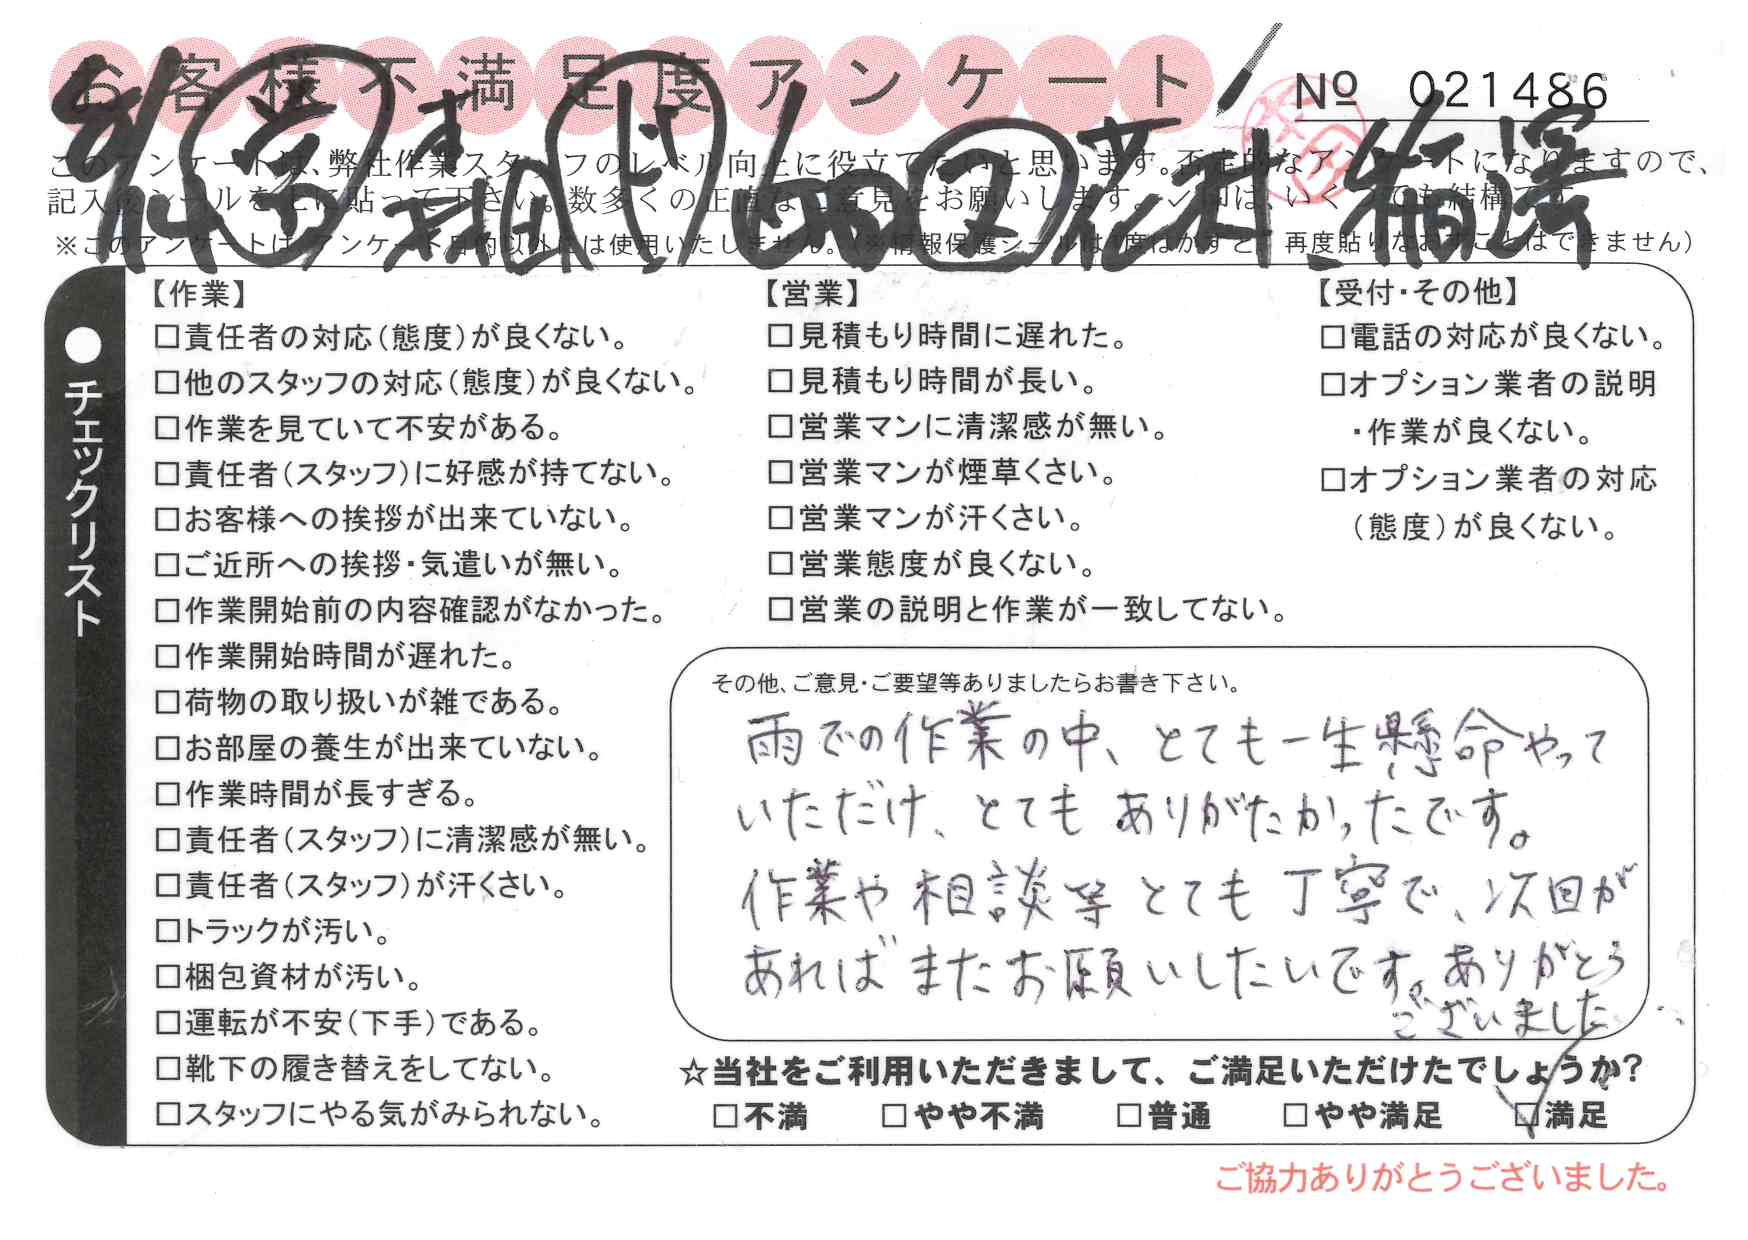 お客様不満足度アンケート
№ 021486
このアンケートは、弊社作業スタッフのレベル向上に役立てたいと思います。否定的なアンケートになりますので、
記入後シールを上に貼って下さい。数多くの正直なご意見をお願いします。✓印は、いくつでも結構です。
※このアンケートは、アンケート目的以外には使用いたしません。(※情報保護シールは1度はがすと、再度貼りなおすことはできません)
●チェックリスト
【作業】
□責任者の対応(態度)が良くない。
□他のスタッフの対応(態度)が良くない。
□作業を見ていて不安がある。
□責任者(スタッフ)に好感が持てない。
□お客様への挨拶が出来ていない。
□ご近所への挨拶・気遣いが無い。
□作業開始前の内容確認がなかった。
□作業開始時間が遅れた。
□荷物の取り扱いが雑である。
□お部屋の養生が出来ていない。
□作業時間が長すぎる。
□責任者(スタッフ)に清潔感が無い。
□責任者(スタッフ)が汗くさい。
□トラックが汚い。
□梱包資材が汚い。
□運転が不安(下手)である。
□靴下の履き替えをしてない。
□スタッフにやる気がみられない。
【営業】
□見積もり時間に遅れた。
□見積もり時間が長い。
□営業マンに清潔感が無い。
□営業マンが煙草くさい。
□営業マンが汗くさい。
□営業態度が良くない。
□営業の説明と作業が一致してない。
【受付・その他】
□電話の対応が良くない。
□オプション業者の説明
・作業が良くない。
□オプション業者の対応
(態度)が良くない。
その他、ご意見・ご要望等ありましたらお書き下さい。
雨での作業の中、とても一生懸命やって
いただけ、とても ありがたかったです。
作業や相談等とても丁寧で、次回が
あればまたお願いしたいです。ありがとう
ございました
☆当社をご利用いただきまして、ご満足いただけたでしょうか?
□不満 □やや不満 □普通 □やや満足 ☑満足
ご協力ありがとうございました。